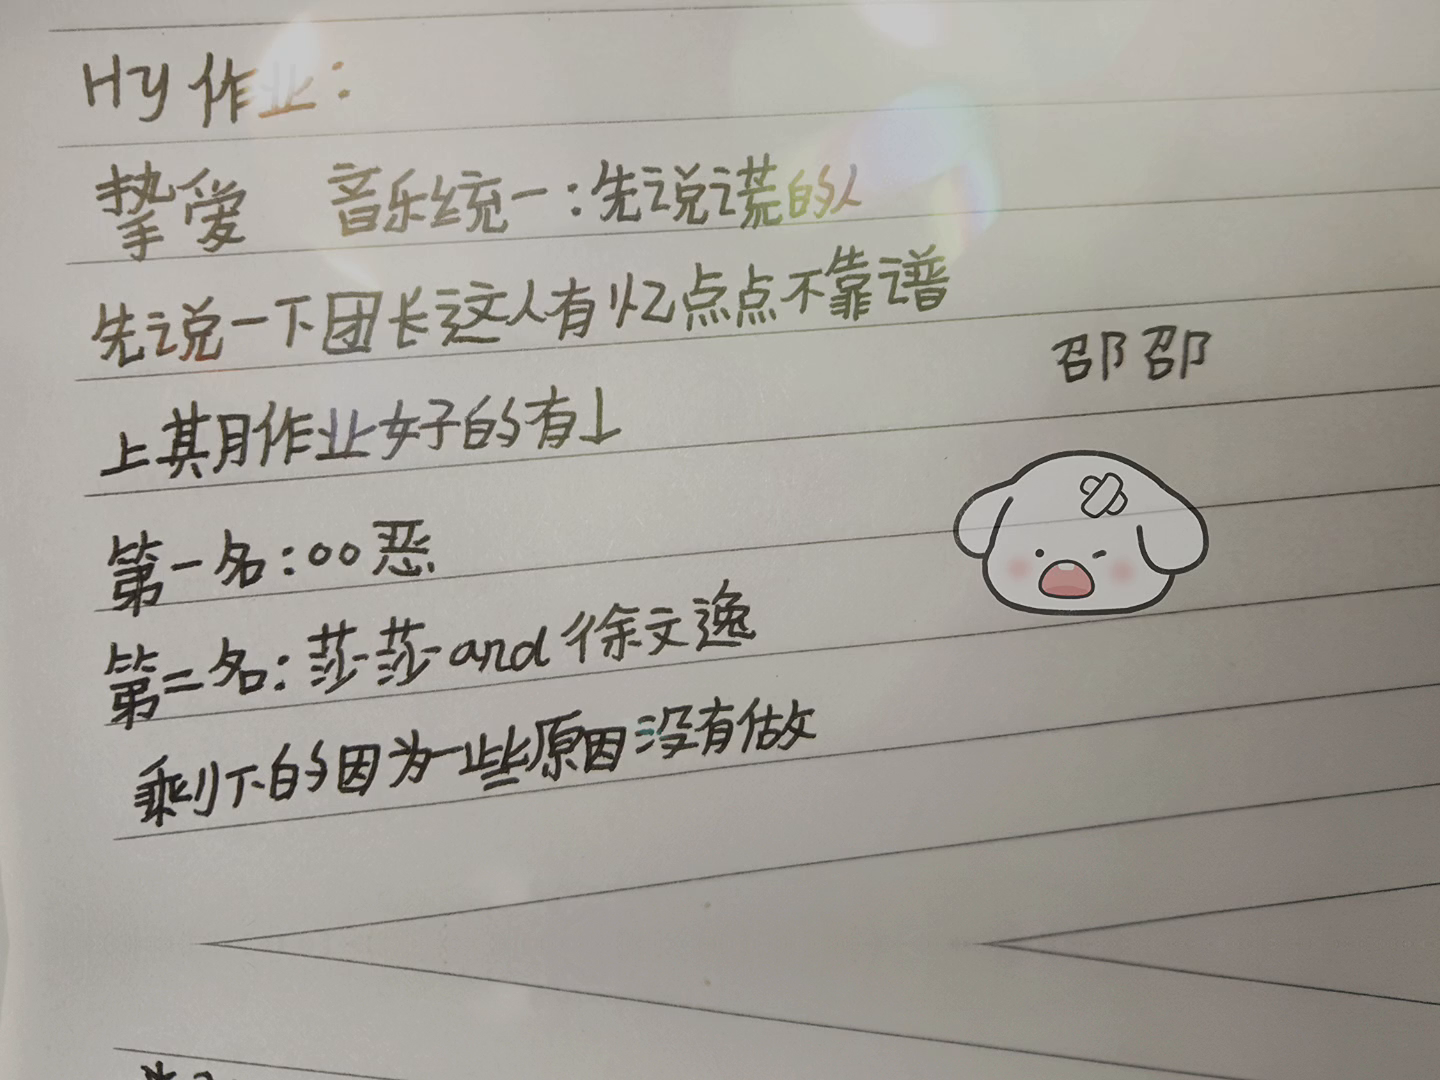 Hy作业：
挚爱 音乐统一：先说谎的人
先说一下团长这人有亿点点不靠谱
邵邵
上其月作业好的有↓
第一名：○○恶
第二名：莎莎and徐文逸
剩下的因为一些原因没有做